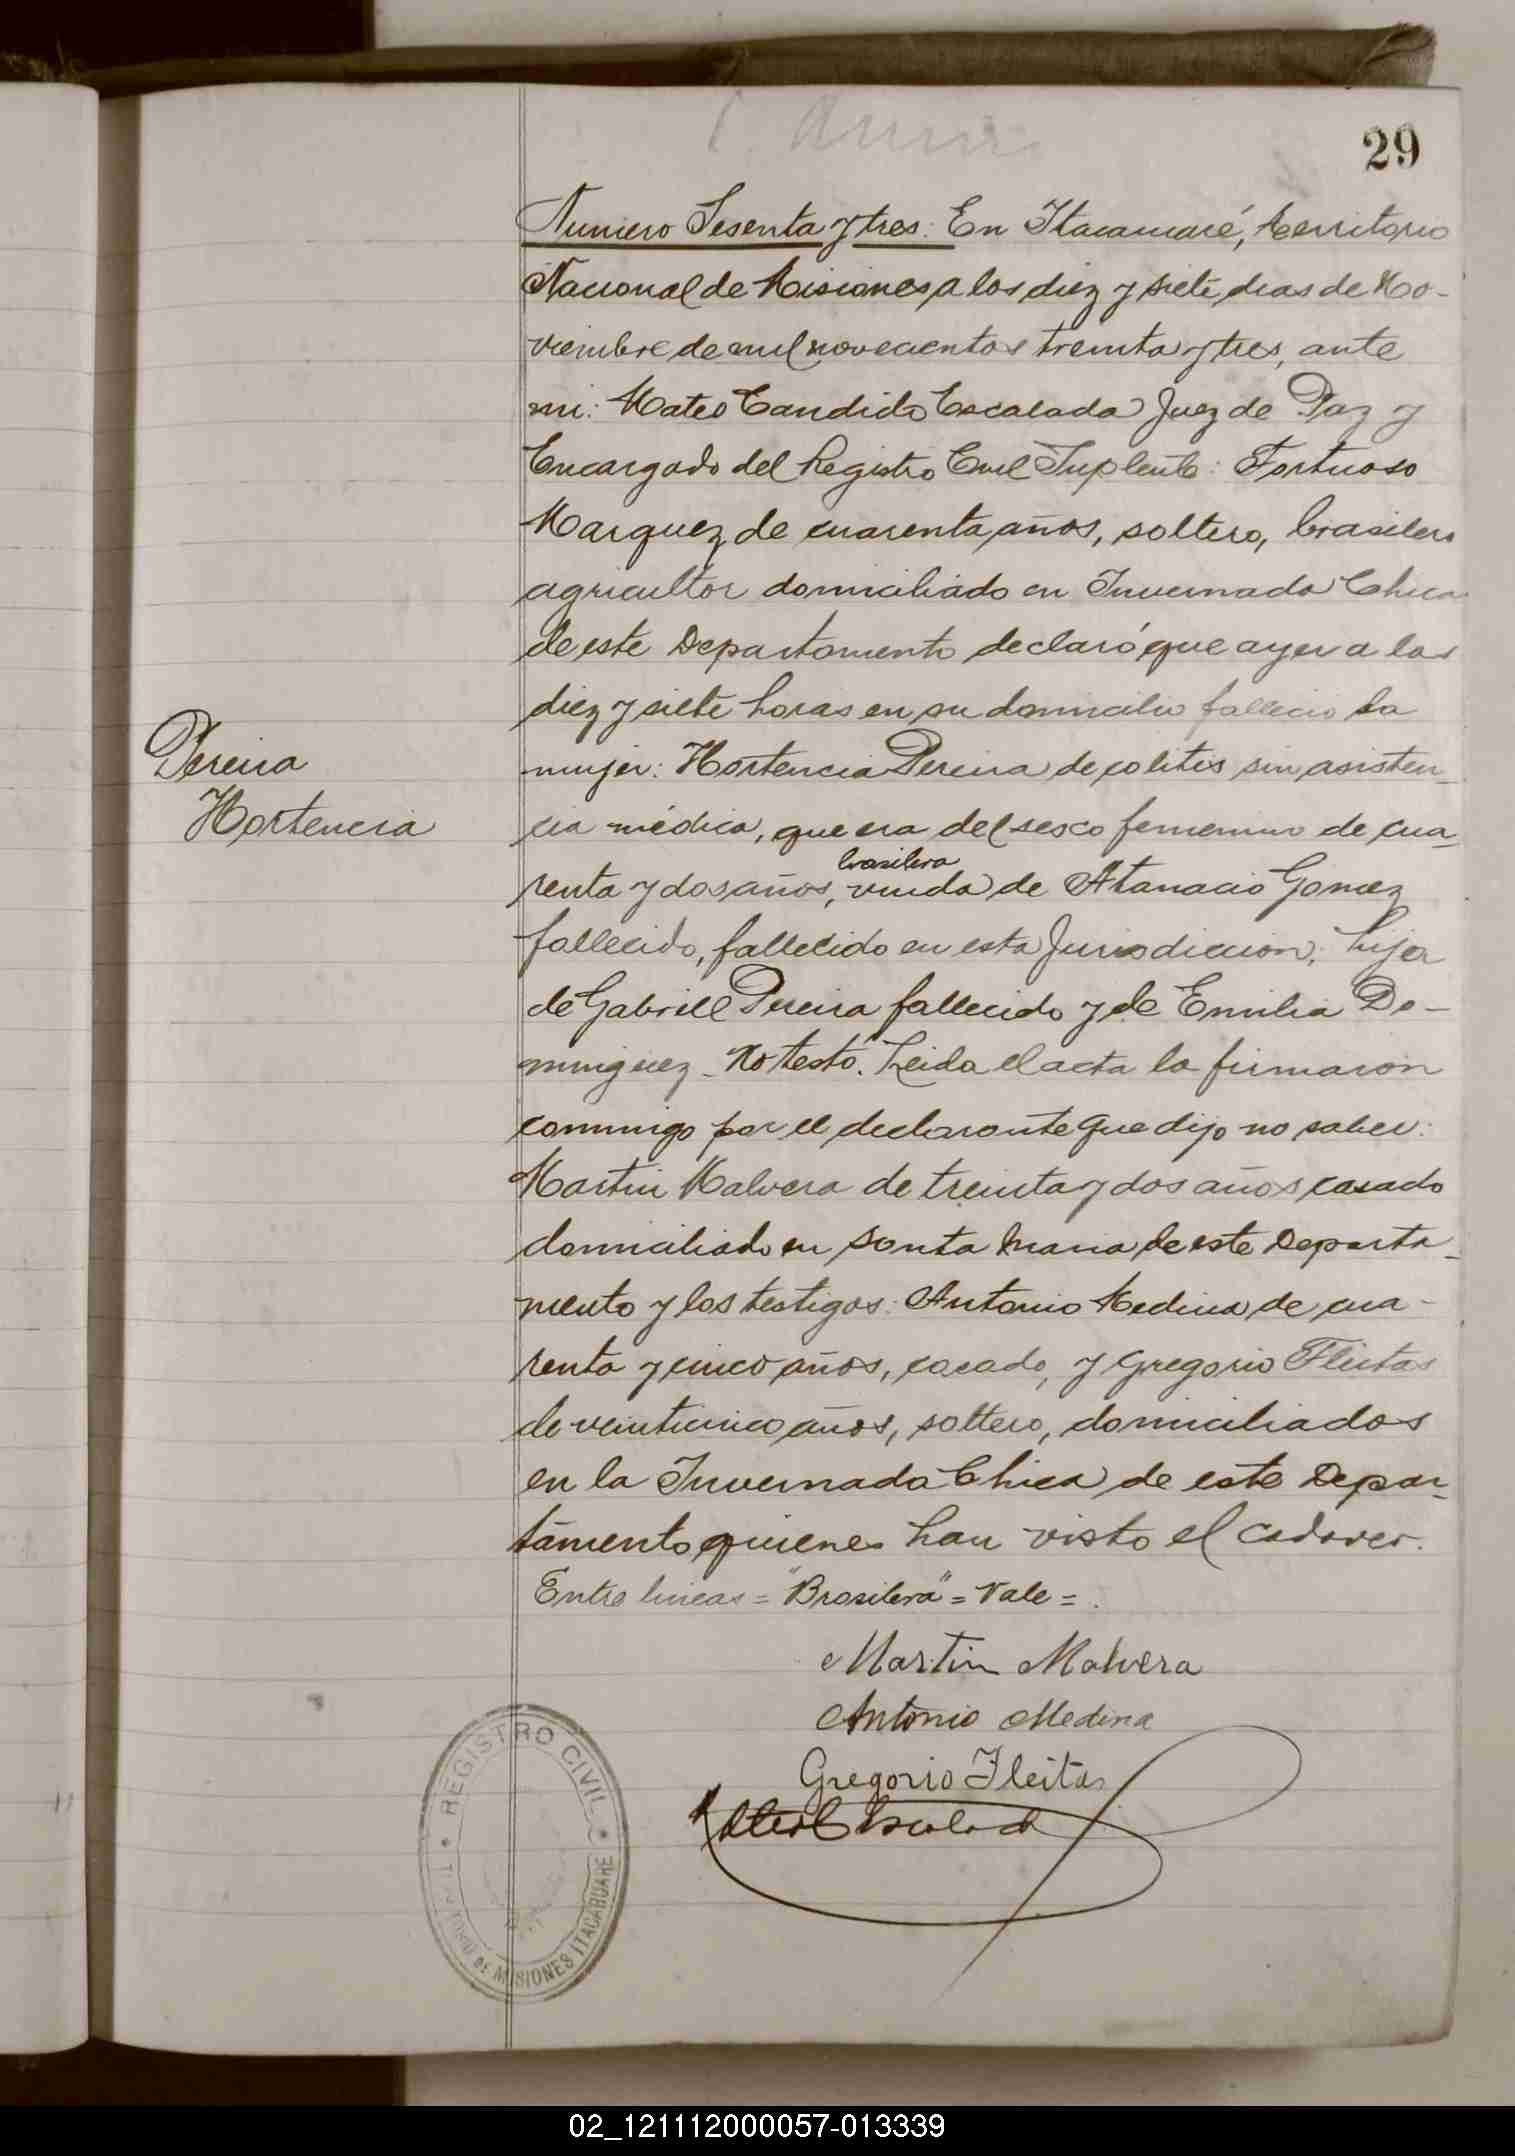 29
Numero Sesenta y tres: En Itacaruaré, territorio
Nacional de Misiones a los diez y siete dias de No-
viembre de mil novecientos treinta y tres, ante
mi: Mateo Candido Escalada Juez de Paz y
Encargado del Registro Civil Suplente: Fortuoso
Marquez de cuarenta años, soltero, brasilero
agricultor domiciliado en Invernada Chica
de este Departamento declaró que ayer a las
diez y siete horas en su domicilio fallecio la
mujer: Hortencia Pereira de colitis sin asisten-
cia médica, que era del sesco femenino de cua-
brasilera
renta y dos años, viuda de Atanacio Gomez
fallecido, fallecido en esta Jurisdiccion; hija
de Gabriel Pereira fallecido y de Emilia Do-
minguez. No testó. Leida el acta la firmaron
conmigo por el declarante que dijo no saber:
Martin Malvera de treinta y dos años casado
domiciliado en Santa Maria de este Departa-
mento y los testigos: Antonio Medina de cua-
renta y cinco años, casado, y Gregorio Fleitas
de veinticinco años, soltero, domiciliados
en la Invernada Chica de este Depar-
tamento quienes han visto el cadaver.
Entre lineas = "Brasilera" = Vale =.
Pereira
Hortencia
Martin Malvera
Antonio Medina
Gregorio Fleitas
REGISTRO CIVIL
DE MISIONES ITACARUARE
02_121112000057-013339